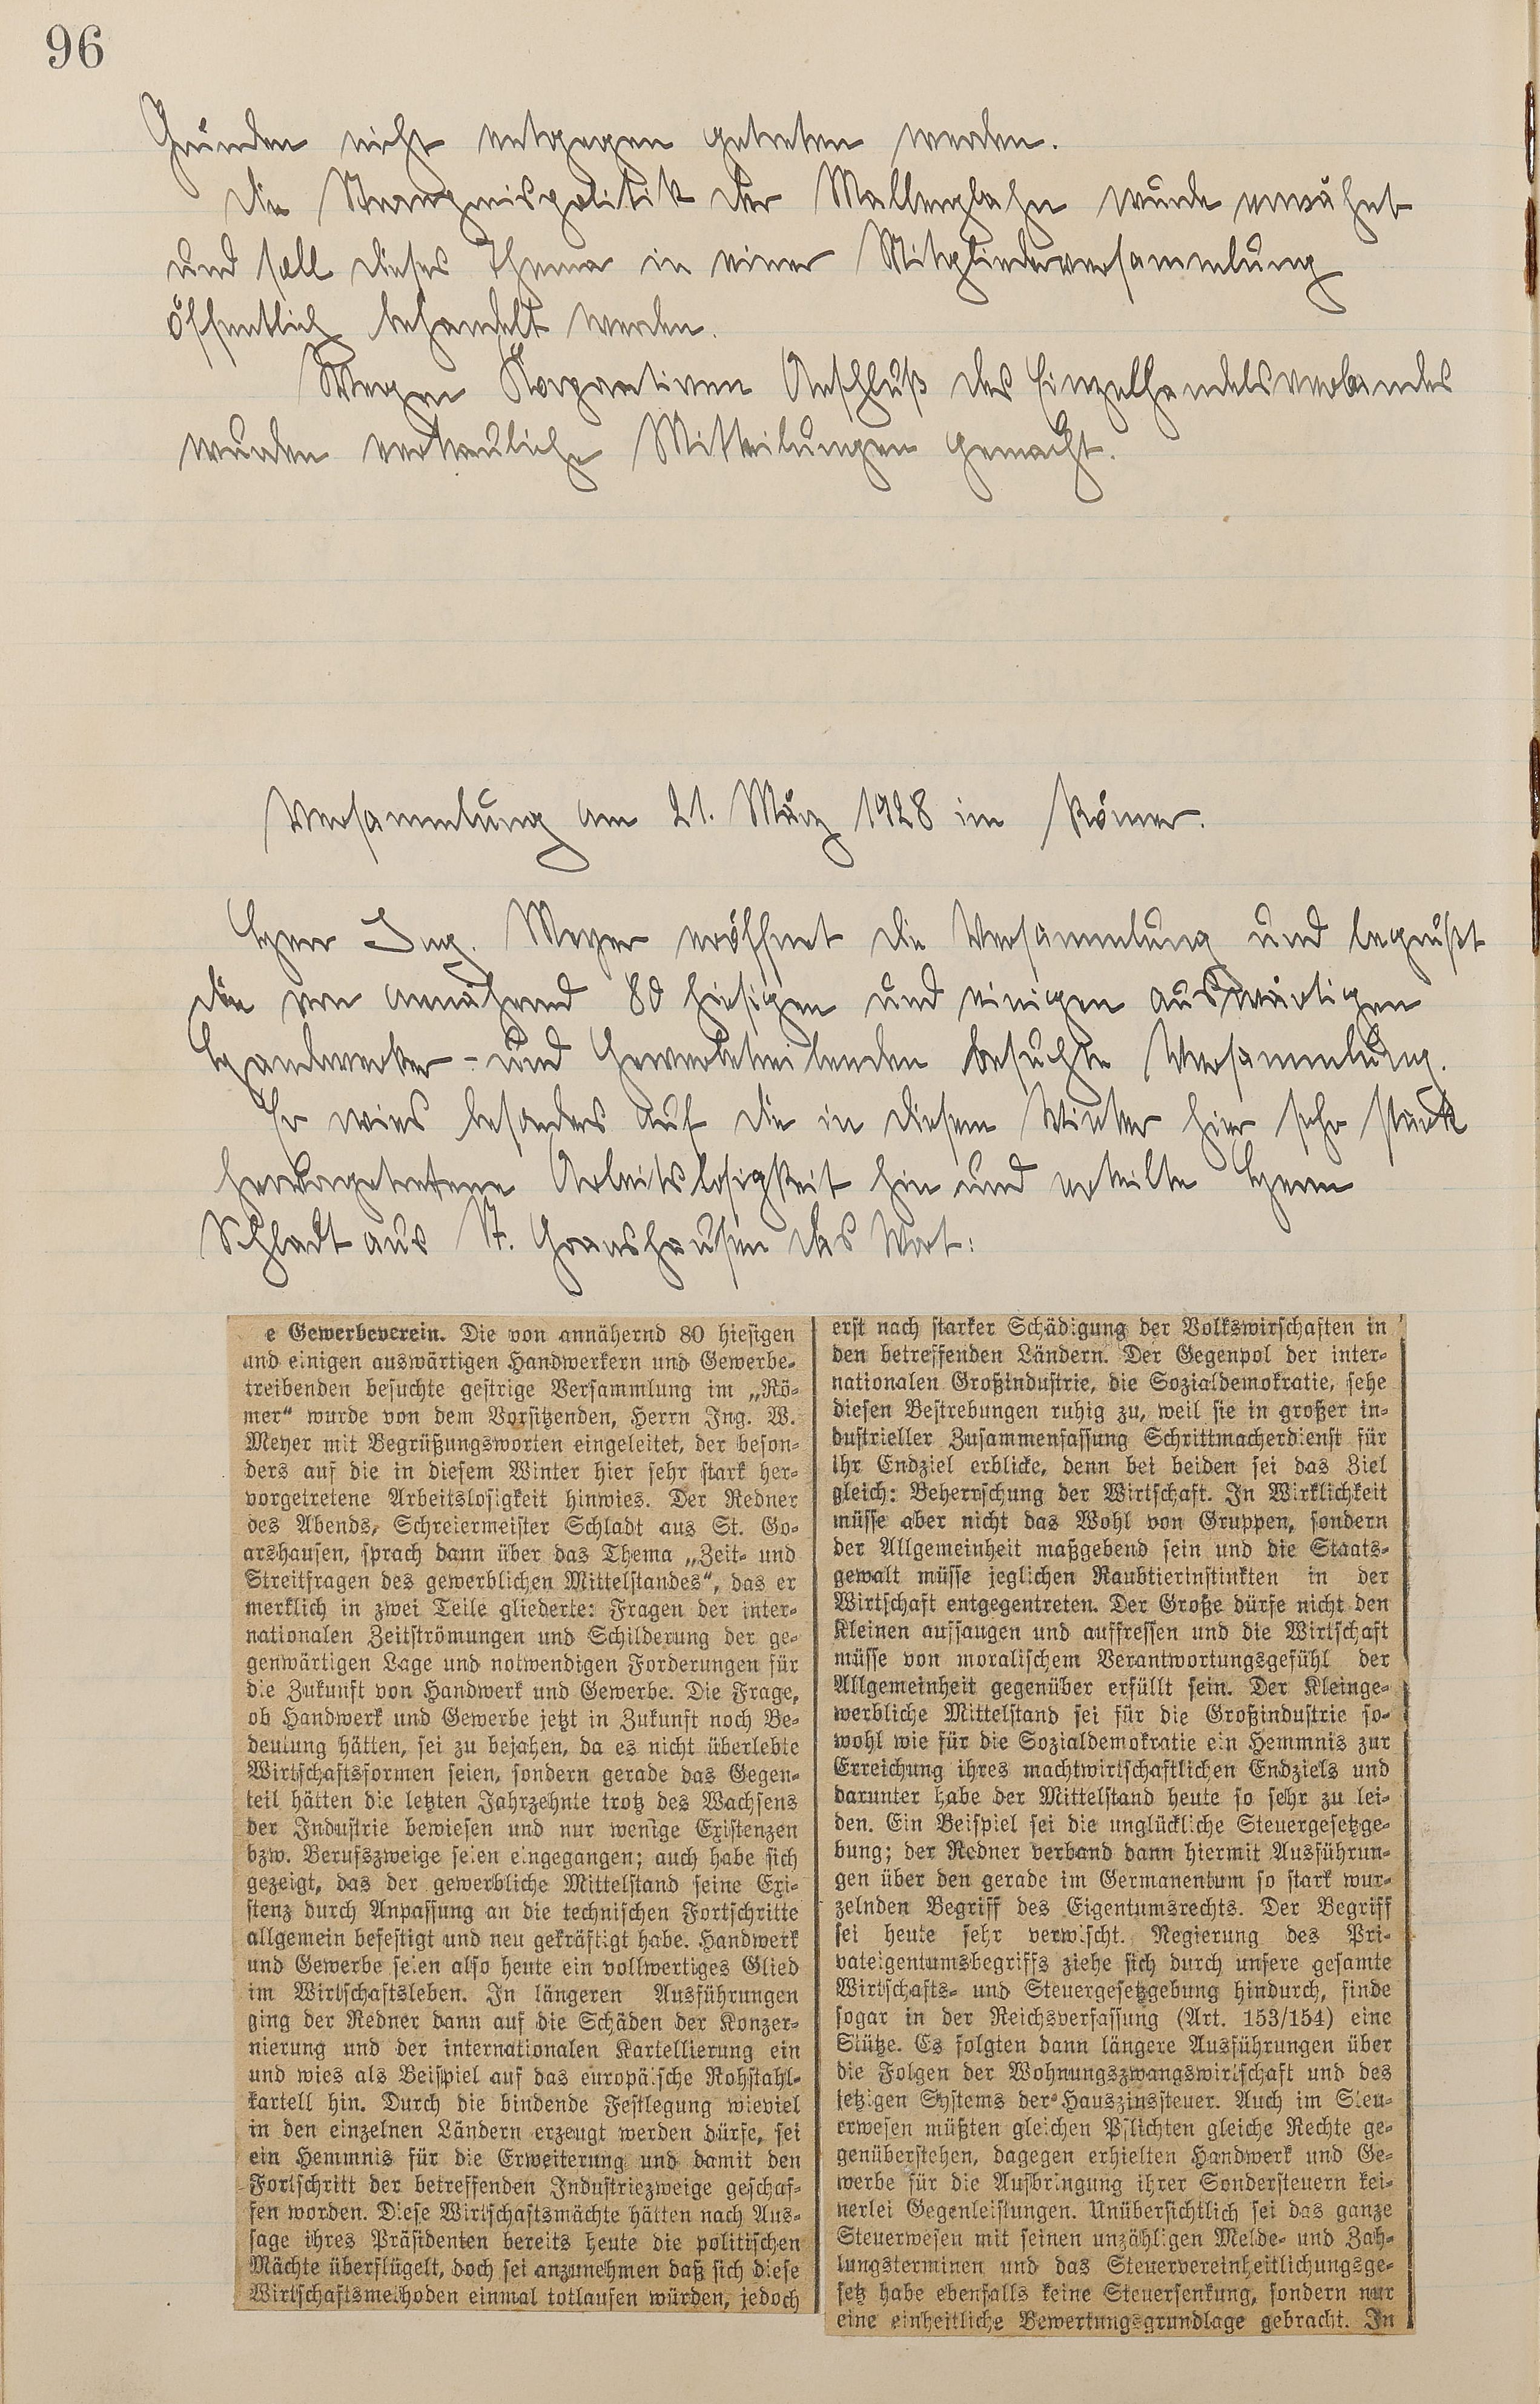 96
Gründen nicht entgegen getreten werden.
Die politik der Mallengbahn wurde erwähnt
und soll dieses Thema in einer Mitgliederversammlung
öffentlich behandelt werden.
Wegen Korporativen Anschluß des Einzelhandelsverbandes
wurden vertrauliche Mitteilungen gemacht.
Versammlung am 21. März 1928 im Römer.
Herr Ing. Meyer eröffnet die Versammlung und begrüßt
die von annährend 80 hiesigen und einigen auswärtigen
Handwerker- und Gewerbetreibenden besuchte Versammlung.
Er wies besonders auf die in diesem Winter hier sehr stark
hervorgetretene Arbeitslosigkeit hin und erteilte Herrn
Schladt aus St. Goarshausen das Wort:
e Gewerbeverein. Die von annähernd 80 hiesigen
und einigen auswärtigen Handwerkern und Gewerbe-
treibenden besuchte gestrige Versammlung im „Rö-
mer“ wurde von dem Vorsitzenden, Herrn Ing. W.
Meyer mit Begrüßungsworten eingeleitet, der beson-
ders auf die in diesem Winter hier sehr stark her-
vorgetretene Arbeitslosigkeit hinwies. Der Redner
des Abends, Schreiermeister Schladt aus St. Go-
arshausen, sprach dann über das Thema „Zeit- und
Streitfragen des gewerblichen Mittelstandes“, das er
merklich in zwei Teile gliederte: Fragen der inter-
nationalen Zeitströmungen und Schilderung der ge-
genwärtigen Lage und notwendigen Forderungen für
die Zukunft von Handwerk und Gewerbe. Die Frage,
ob Handwerk und Gewerbe jetzt in Zukunft noch Be-
deutung hätten, sei zu bejahen, da es nicht überlebte
Wirtschaftsformen seien, sondern gerade das Gegen-
teil hätten die letzten Jahrzehnte trotz des Wachsens
der Industrie bewiesen und nur wenige Existenzen
bzw. Berufszweige seien eingegangen; auch habe sich
gezeigt, das der gewerbliche Mittelstand seine Exi-
stenz durch Anpassung an die technischen Fortschritte
allgemein befestigt und neu gekräftigt habe. Handwerk
und Gewerbe seien also heute ein vollwertiges Glied
im Wirtschaftsleben. In längeren Ausführungen
ging der Redner dann auf die Schäden der Konzer-
nierung und der internationalen Kartellierung ein
und wies als Beispiel auf das europäische Rohstahl-
kartell hin. Durch die bindende Festlegung wieviel
in den einzelnen Ländern erzeugt werden dürfe, sei
ein Hemmnis für die Erweiterung und damit den
Fortschritt der betreffenden Industriezweige geschaf-
fen worden. Diese Wirtschaftsmächte hätten nach Aus-
sage ihres Präsidenten bereits heute die politischen
Mächte überflügelt, doch sei anzunehmen daß sich diese
Wirtschaftsmethoden einmal totlaufen würden, jedoch
erst nach starker Schädigung der Volkswirschaften in
den betreffenden Ländern. Der Gegenpol der inter-
nationalen Großindustrie, die Sozialdemokratie, sehe
diesen Bestrebungen ruhig zu, weil sie in großer in-
dustrieller Zusammenfassung Schrittmacherdienst für
ihr Endziel erblicke, denn bei beiden sei das Ziel
gleich: Beherrschung der Wirtschaft. In Wirklichkeit
müsse aber nicht das Wohl von Gruppen, sondern
der Allgemeinheit maßgebend sein und die Staats-
gewalt müsse jeglichen Raubtierinstinkten in der
Wirtschaft entgegentreten. Der Große dürfe nicht den
Kleinen aufsaugen und auffressen und die Wirtschaft
müsse von moralischem Verantwortungsgefühl der
Allgemeinheit gegenüber erfüllt sein. Der Kleinge-
werbliche Mittelstand sei für die Großindustrie so-
wohl wie für die Sozialdemokratie ein Hemmnis zur
Erreichung ihres machtwirtschaftlichen Endziels und
darunter habe der Mittelstand heute so sehr zu lei-
den. Ein Beispiel sei die unglückliche Steuergesetzge-
bung; der Redner verband dann hiermit Ausführun-
gen über den gerade im Germanentum so stark wur-
zelnden Begriff des Eigentumsrechts. Der Begriff
sei heute sehr verwischt. Negierung des Pri-
vateigentumsbegriffs ziehe sich durch unsere gesamte
Wirtschafts- und Steuergesetzgebung hindurch, finde
sogar in der Reichsverfassung (Art. 153/154) eine
Stütze. Es folgten dann längere Ausführungen über
die Folgen der Wohnungszwangswirtschaft und des
jetzigen Systems der Hauszinssteuer. Auch im Steu-
erwesen müßten gleichen Pflichten gleiche Rechte ge-
genüberstehen, dagegen erhielten Handwerk und Ge-
werbe für die Aufbringung ihrer Sondersteuern kei-
nerlei Gegenleistungen. Unübersichtlich sei das ganze
Steuerwesen mit seinen unzähligen Melde- und Zah-
lungsterminen und das Steuervereinheitlichungsge-
setz habe ebenfalls keine Steuersenkung, sondern nur
eine einheitliche Bewertungsgrundlage gebracht. In